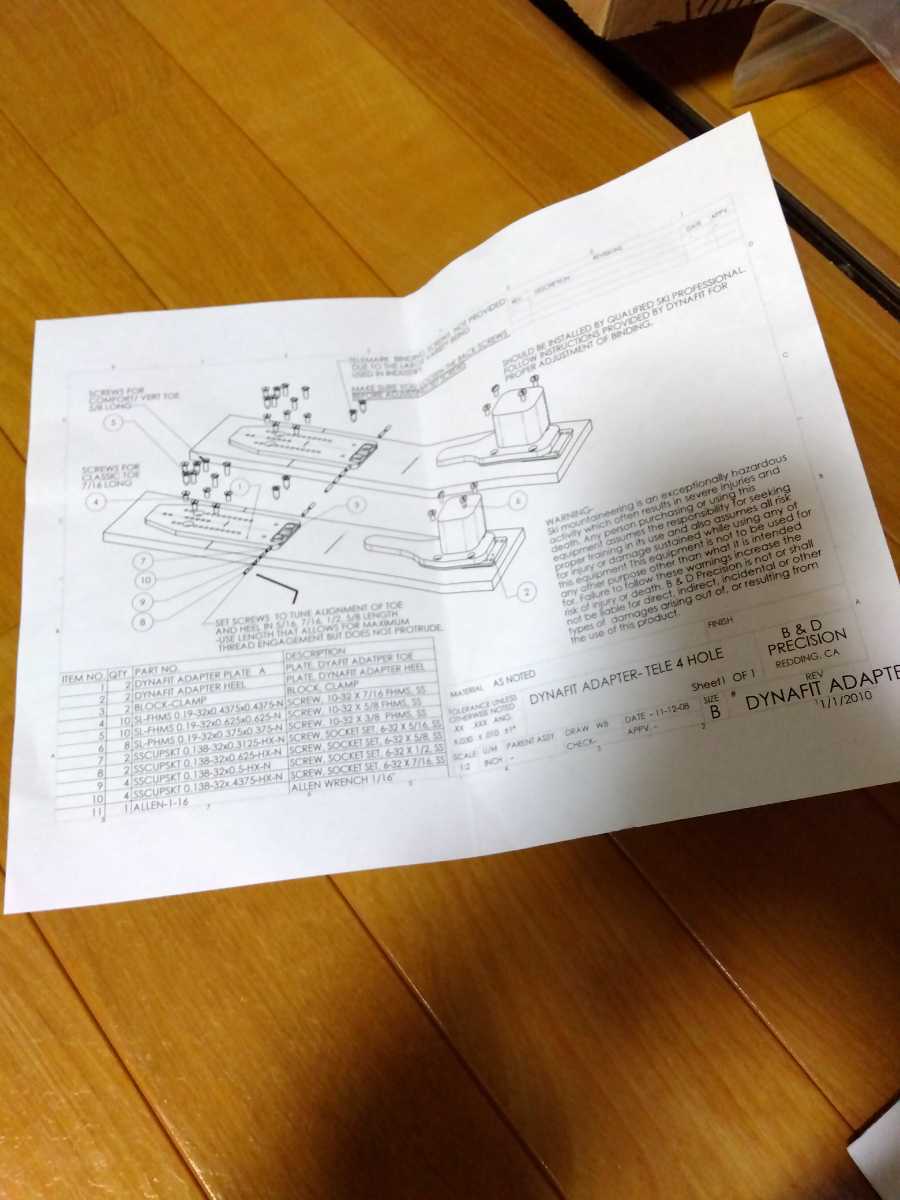 REVISIONS
REV. DESCRIPTION DATE APPV.
TELEMARK BINDING SCREWS NOT PROVIDED
DUE TO THE LARGE VARIETY BEING
USED IN INDUSTRY
MAKE SURE YOU LOOSEN THE BACK SCREWS
BEFORE ADJUSTING SET SCREWS
SHOULD BE INSTALLED BY QUALIFIED SKI PROFESSIONAL.
FOLLOW INSTRUCTIONS PROVIDED BY DYNAFIT FOR
PROPER ADJUSTMENT OF BINDING.
SCREWS FOR
COMFORT/ VERT TOE
5/8 LONG
5
SCREWS FOR
CLASSIC TOE
7/16 LONG
4
1
3
6
7
10
9
8
2
WARNING-
Ski mountaineering is an exceptionally hazardous
activity which often results in severe injuries and
death. Any person purchasing or using this
equipment assumes the responsibility for seeking
proper training in its use and also assumes all risk
for injury or damage sustained while using any of
this equipment This equipment is not to be used for
any other purpose other than what it is intended
for. Failure to follow these warnings increase the
risk of injury or death. B & D Precision is not or shall
not be liable for direct, indirect, incidental or other
types of damages arising out of, or resulting from
the use of this product.
SET SCREWS TO TUNE ALIGNMENT OF TOE
AND HEEL IN 5/16, 7/16, 1/2, 5/8 LENGTH
-USE LENGTH THAT ALLOWS FOR MAXIMUM
THREAD ENGAGEMENT BUT DOES NOT PROTRUDE.
ITEM NO. QTY PART NO. DESCRIPTION
1 2 DYNAFIT ADAPTER PLATE A PLATE, DYAFIT ADATPER TOE
2 2 DYNAFIT ADAPTER HEEL PLATE, DYNAFIT ADAPTER HEEL
3 2 BLOCK-CLAMP BLOCK, CLAMP
4 10 SL-FHMS 0.19-32x0.4375x0.4375-N SCREW, 10-32 X 7/16 FHMS, SS
5 10 SL-FHMS 0.19-32x0.625x0.625-N SCREW, 10-32 X 5/8 FHMS, SS
6 8 SL-PHMS 0.19-32x0.375x0.375-N SCREW, 10-32 X 3/8 PHMS, SS
7 2 SSCUPSKT 0.138-32x0.3125-HX-N SCREW, SOCKET SET, 6-32 X 5/16, SS
8 2 SSCUPSKT 0.138-32x0.625-HX-N SCREW, SOCKET SET, 6-32 X 5/8, SS
9 4 SSCUPSKT 0.138-32x0.5-HX-N SCREW, SOCKET SET, 6-32 X 1/2, SS
10 4 SSCUPSKT 0.138-32x.4375-HX-N SCREW, SOCKET SET, 6-32 X 7/16, SS
11 1 ALLEN-1-16 ALLEN WRENCH 1/16"
MATERIAL AS NOTED
FINISH
B & D
PRECISION
REDDING, CA
TOLERANCE UNLESS
OTHERWISE NOTED
.XX .XXX ANG.
±.030 ±.010 ±1°
DYNAFIT ADAPTER- TELE 4 HOLE
Sheet1 OF 1
REV
1/1/2010
SCALE 1:2
U/M INCH
PARENT ASSY -
DRAW WB
CHECK-
DATE -11-12-08
APPV. -
SIZE B
#
DYNAFIT ADAPTE